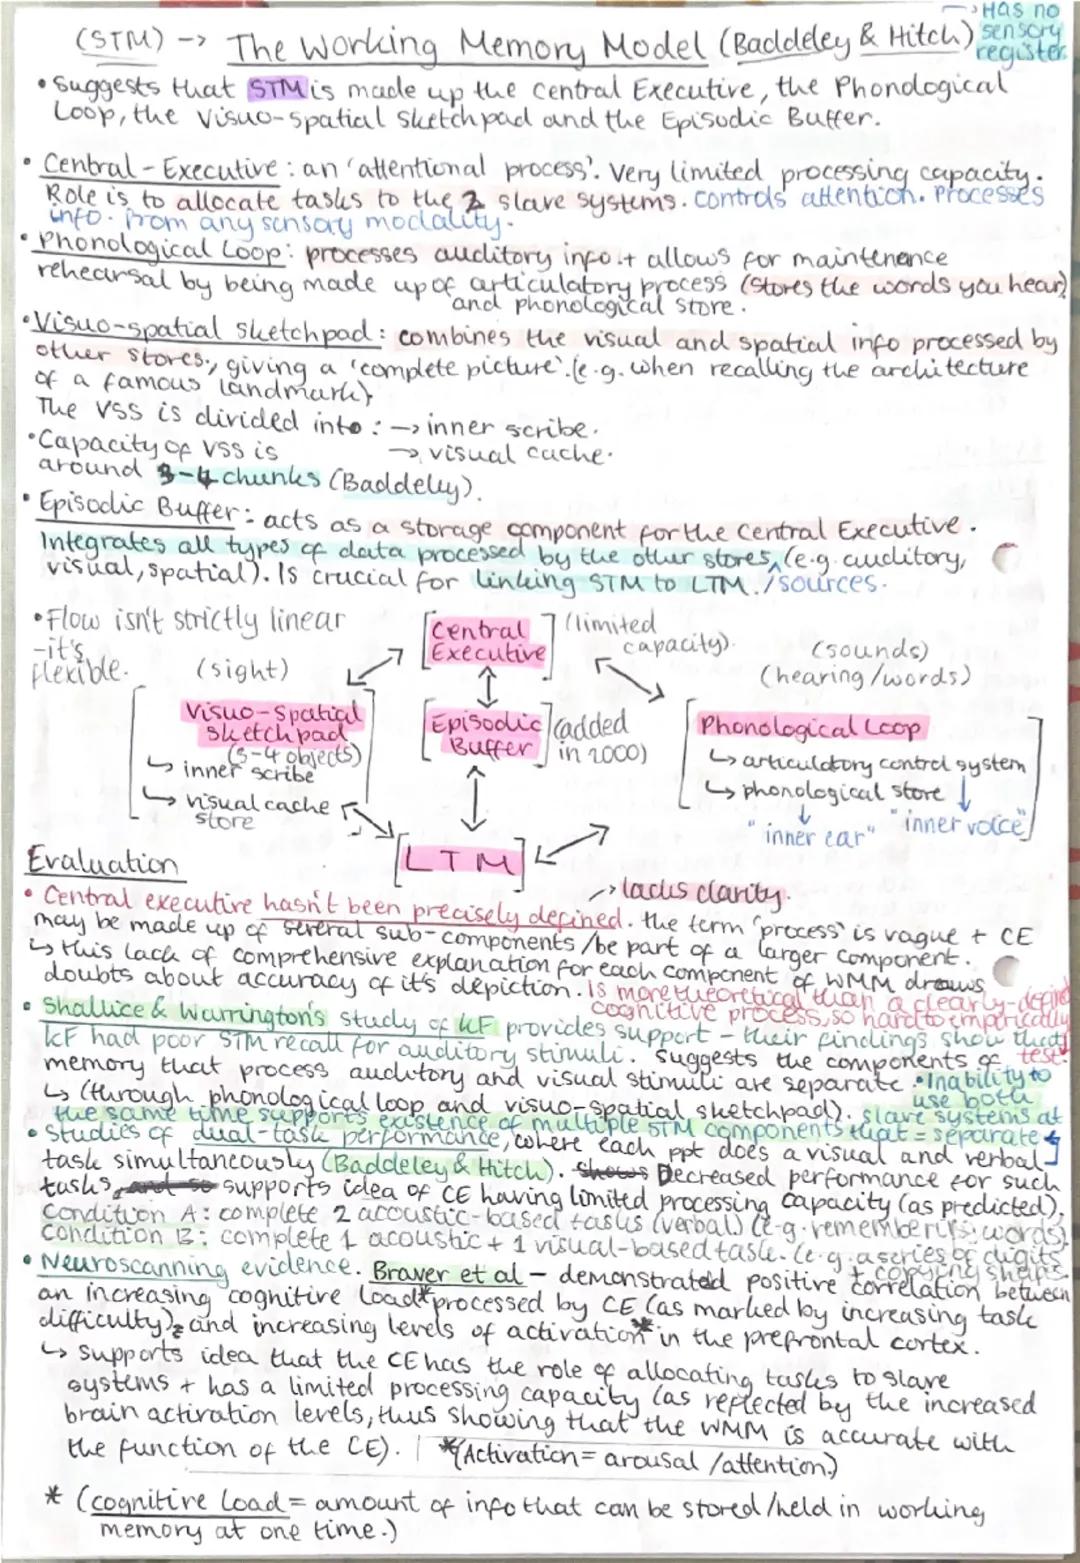 Has no
(STM) -> The Working Memory Model (Baddeley & Hitch) sensory
register.
• Suggests that STM is made up the Central Executive, the Phonological
Loop, the Visuo-Spatial Sketchpad and the Episodic Buffer.
• Central-Executive: an 'attentional process'. Very limited processing capacity.
Role is to allocate tasks to the 2 slave systems. Controls attention. Processes
info. from any sensory modality.
• Phonological Loop: processes auditory info. + allows for maintenance
rehearsal by being made up of articulatory process (stores the words you hear)
and phonological store.
• Visuo-spatial sketchpad: combines the visual and spatial info processed by
other stores, giving a 'complete picture'. (e.g. when recalling the architecture
of a famous landmark)
The VSS is divided into: -> inner scribe.
• Capacity of VSS is -> visual cache.
around 3-4 chunks (Baddeley).
• Episodic Buffer: acts as a storage component for the Central Executive.
Integrates all types of data processed by the other stores, (e.g. auditory,
visual, spatial). Is crucial for linking STM to LTM. /sources.
• Flow isn't strictly linear
- it's
flexible.
[Central
Executive] (limited
capacity).
(sight)
(sounds)
(hearing/words)
Visuo-Spatial
Sketchpad
(3-4 objects)
↳ inner scribe
↳ visual cache
store
[Episodic
Buffer] (added
in 2000)
Phonological Loop
↳ articulatory control system
↳ phonological store ↓
↓
"inner ear" "inner voice"
[LTM]
Evaluation
-> lacks clarity.
• Central executive hasn't been precisely defined. the term 'process' is vague + CE
may be made up of several sub-components /be part of a larger component.
↳ this lack of comprehensive explanation for each component of WMM draws
doubts about accuracy of it's depiction. Is more theoretical than a clearly-defined
cognitive process, so hard to empirically
test.
• Shallice & Warrington's study of KF provides support - their findings show that
KF had poor STM recall for auditory stimuli. Suggests the components of
memory that process auditory and visual stimuli are separate. • Inability to
use both
↳ (through phonological loop and visuo-spatial sketchpad). slave systems at
the same time supports existence of multiple STM components that = separate
• Studies of dual-task performance, where each ppt does a visual and verbal
task simultaneously (Baddeley & Hitch). shows Decreased performance for such
tasks, and so supports idea of CE having limited processing capacity (as predicted).
Condition A: complete 2 acoustic-based tasks (verbal) (e.g. remembering words)
Condition B: complete 1 acoustic + 1 visual-based task. (e.g. a series of digits
+ copying shapes.
• Neuroscanning evidence. Braver et al - demonstrated positive correlation between
an increasing cognitive load* processed by CE (as marked by increasing task
difficulty), and increasing levels of activation* in the prefrontal cortex.
↳ Supports idea that the CE has the role of allocating tasks to slave
systems + has a limited processing capacity (as reflected by the increased
brain activation levels, thus showing that the WMM is accurate with
the function of the CE). | *(Activation = arousal /attention)
* (cognitive load = amount of info that can be stored/held in working
memory at one time.)